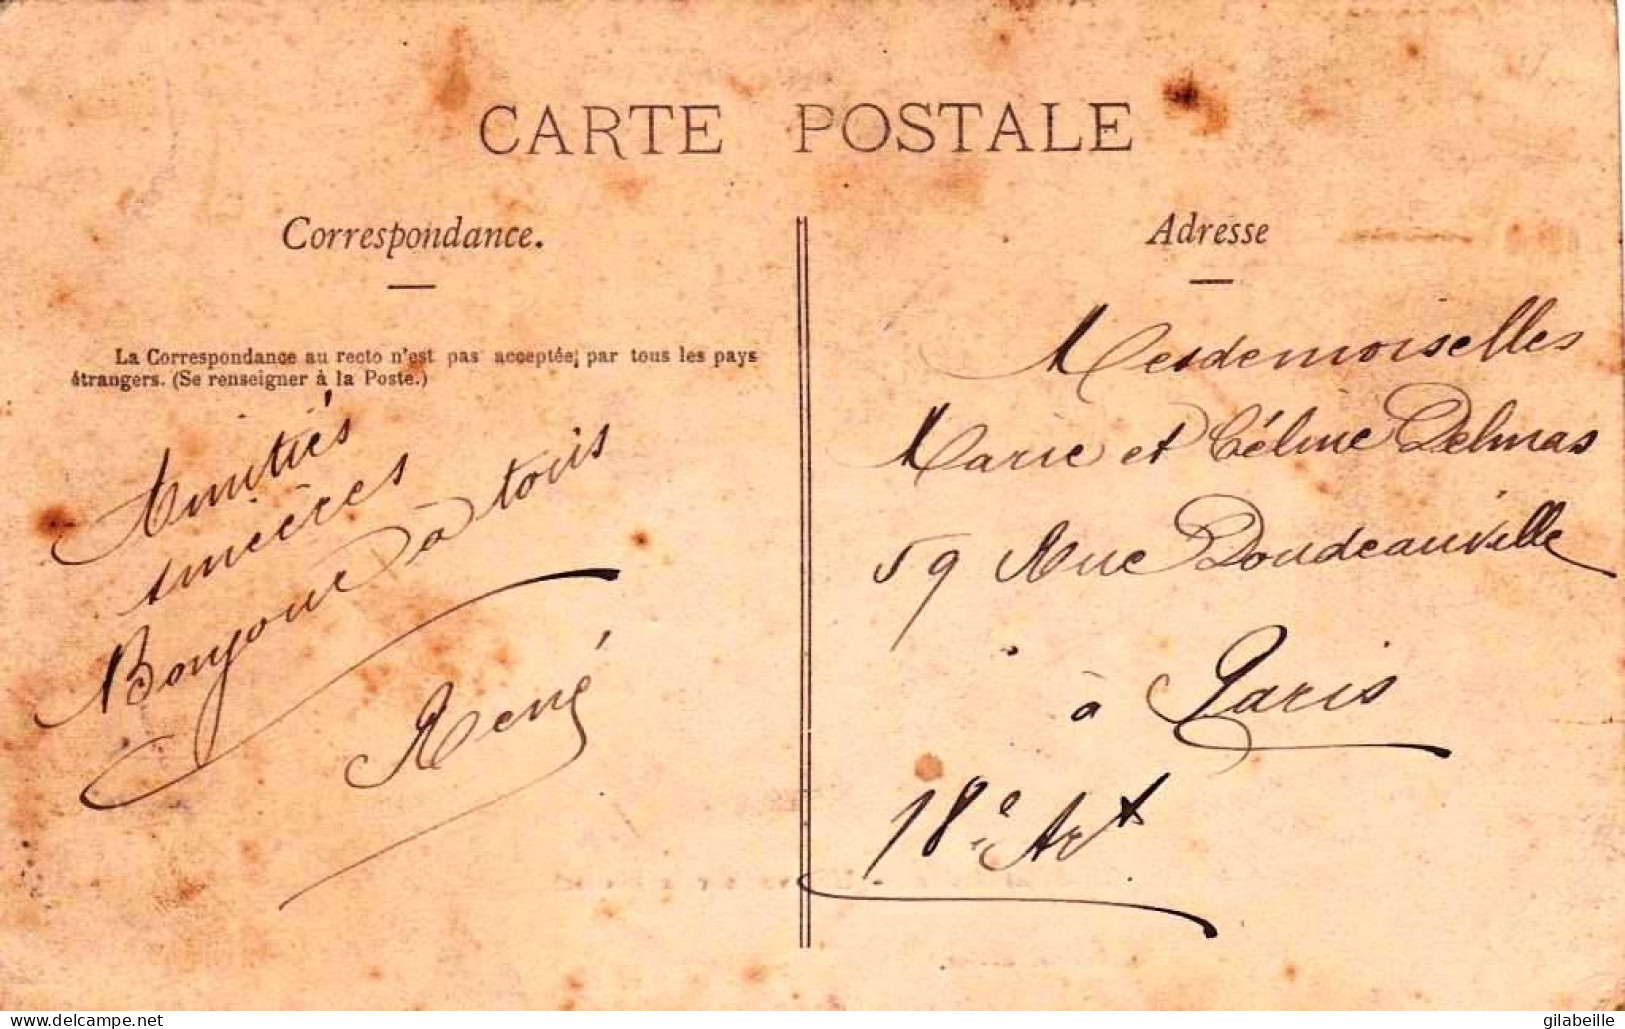 CARTE POSTALE
Correspondance.
La Correspondance au recto n'est pas acceptée, par tous les pays
étrangers. (Se renseigner à la Poste.)
Amitiés
sincères
Bonjour à tous
René
Adresse
Mesdemoiselles
Marie et Céline Delmas
59 Rue Doudeauville
à Paris
18e Art
delcampe.net
gilabeille